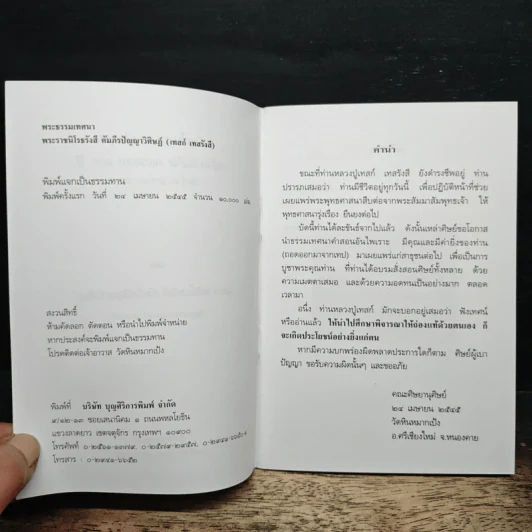 พระธรรมเทศนา
พระราชนิโรธรังสี คัมภีรปัญญาวิศิษฏ์ (เทสก์ เทสรังสี)
พิมพ์แจกเป็นธรรมทาน
พิมพ์ครั้งแรก วันที่ ๒๔ เมษายน ๒๕๔๕ จำนวน ๑๐,๐๐๐ เล่ม
สงวนสิทธิ์
ห้ามคัดลอก ตัดตอน หรือนำไปพิมพ์จำหน่าย
หากประสงค์จะพิมพ์แจกเป็นธรรมทาน
โปรดติดต่อเจ้าอาวาส วัดหินหมากเป้ง
พิมพ์ที่ บริษัท บุญศิริการพิมพ์ จำกัด
๙/๑๒-๑๓ ซอยเสนานิคม ๑ ถนนพหลโยธิน
แขวงลาดยาว เขตจตุจักร กรุงเทพฯ ๑๐๙๐๐
โทรศัพท์
โทรสาร : ๐-๒๙๔๑-๖๖๕๒
คำนำ
ขณะที่ท่านหลวงปู่เทสก์ เทสรังสี ยังดำรงชีพอยู่ ท่าน
ปรารภเสมอว่า ท่านมีชีวิตอยู่ทุกวันนี้ เพื่อปฏิบัติหน้าที่ช่วย
เผยแพร่พระพุทธศาสนาสืบต่อจากพระสัมมาสัมพุทธเจ้า ให้
พุทธศาสนารุ่งเรือง ยืนยงต่อไป
บัดนี้ท่านได้ละขันธ์จากไปแล้ว ดังนั้นเหล่าศิษย์ขอโอกาส
นำธรรมเทศนาคำสอนอันไพเราะ มีคุณและมีค่ายิ่งของท่าน
(ถอดออกมาจากเทป) มาเผยแพร่แก่สาธุชนต่อไป เพื่อเป็นการ
บูชาพระคุณท่าน ที่ท่านได้อบรมสั่งสอนศิษย์ทั้งหลาย ด้วย
ความเมตตาเสมอ และด้วยความอดทนเป็นอย่างมาก ตลอด
เวลามา
อนึ่ง ท่านหลวงปู่เทสก์ มักจะบอกอยู่เสมอว่า ฟังเทศน์
หรืออ่านแล้ว ให้นำไปศึกษาพิจารณาให้ถ่องแท้ด้วยตนเอง ก็
จะเกิดประโยชน์อย่างยิ่งแก่ตน
หากมีความบกพร่องผิดพลาดประการใดก็ตาม ศิษย์ผู้เบา
ปัญญา ขอรับความผิดนั้นๆ และขออภัย
คณะศิษยานุศิษย์
๒๔ เมษายน ๒๕๔๕
วัดหินหมากเป้ง
อ.ศรีเชียงใหม่ จ.หนองคาย